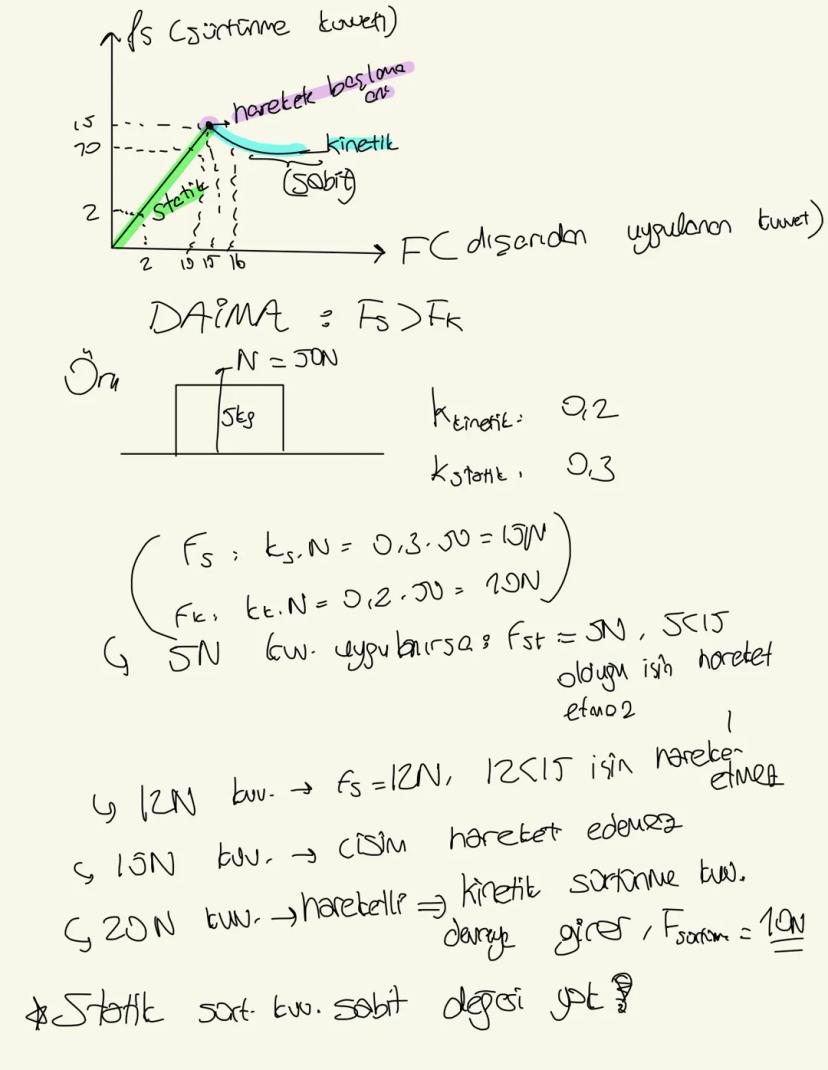 fs (sürtünme kuvveti)
hareket başlama
anı
15
10
kinetik
(sabit)
statik
2
2 10 15 16
F( dışarıdan uygulanan kuvvet)
DAİMA : Fs>Fk
Örn
N = 50N
5kg
kkinetik: 0,2
kstatik: 0,3
Fs : ks.N = 0,3.50 = 15N
Fk: kk.N = 0,2.50 = 10N
↳ 5N kuv. uygulanırsa : Fst = 5N, 5<15
olduğu için hareket
etmez
↳ 12N kuv. → fs = 12N, 12<15 için hareket
etmez
↳ 15N kuv. → cisim hareket edemez
↳ 20N kuv. → hareketli ⇒ kinetik sürtünme kuv.
devreye girer, Fsürtün = 10N
*Statik sürt. kuv. sabit değeri yok!